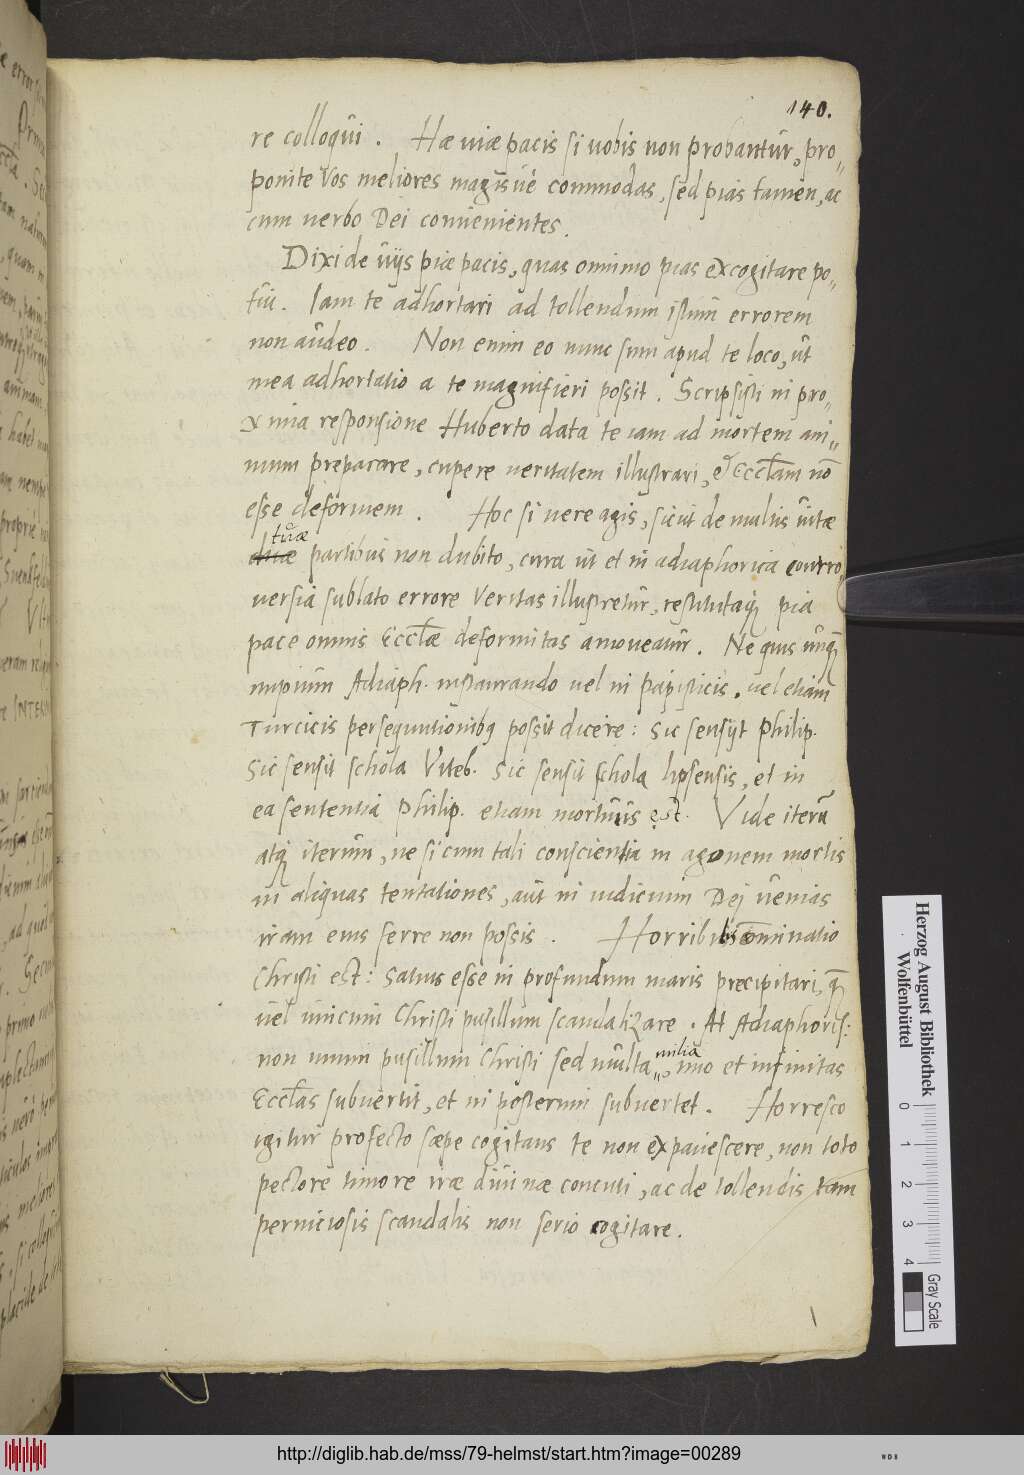 140.
re colloqui. Hæ uiæ pacis si uobis non probantur, pro„
ponite Vos meliores magisue commodas, sed pias tamen, ac
cum uerbo Dei conuenientes.
Dixi de uijs piæ pacis, quas omnino pias excogitare po„
tui. Iam te adhortari ad tollendum istum errorem
non audeo. Non enim eo nunc sum apud te loco, ut
mea adhortatio a te magnifieri possit. Scripsisti in pro„
xima responsione Huberto data te iam ad mortem ani„
mum preparare, cupere ueritatem illustrari, & Eccl̄am nō
esse deformem. Hoc si uere agis, sicut de multis uitæ
tuæ
partibus non dubito, cura ut et in adiaphorica contro„
uersia sublato errore Veritas illustretur, restitutaq́ pia
pace omnis Eccl̄æ deformitas amoueatur. Ne quis unq̃
impium Adiaph. instaurando uel in papisticis. uel etiam
Turcicis persequutionibꝫ possit dicere: Sic sensijt Philip.
Sic sensit schola Viteb. Sic sensit schola lipsensis, et in
ea sententia Philip. etiam mortuus est. Vide iterū
atq́ iterum, ne si cum tali conscientia in agonem mortis
in aliquas tentationes, aut in iudicium Dei uenias
iram eius serre non possis. Horribilis com̄inatio
Christi est: Satius esse in profundum maris precipitari, q̃
uel unicum Christi pusillum scandalizare. At Adiaphoris:
milia
non unum pusillum Christi sed multa„, imo et infinitas
Eccl̄as subuertit, et in posterum subuertet. Horresco
igitur profecto sæpe cogitans te non expauescere, non toto
pectore timore iræ diuinæ concuti, ac de tollendis tam
perniciosis scandalis non serio cogitare.
Herzog August Bibliothek
Wolfenbüttel
0 1 2 3 4
Gray Scale
http://diglib.hab.de/mss/79-helmst/start.htm?image=00289